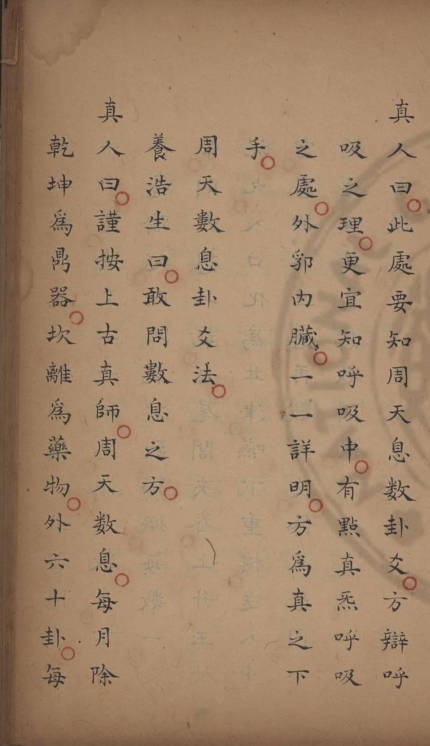 真人曰此處要知周天息數卦爻方辯呼
吸之理更宜知呼吸中有點真炁呼吸
之處外郭內臟一一詳明方為真之下
手
周天數息卦爻法
養浩生曰敢問數息之方
真人曰謹按上古真師周天數息每月除
乾坤為鼎器坎離為藥物外六十卦每